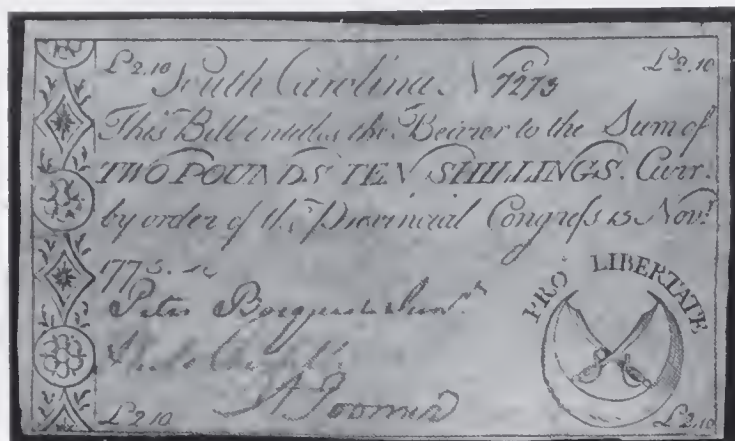 £2.10 South Carolina No 7273 £2.10
This Bill entitles the Bearer to the Sum of
TWO POUNDS TEN SHILLINGS. Curr.
by order of the Provincial Congress 15 Novr
1775.
PRO LIBERTATE
Peter
£2.10 £2.10